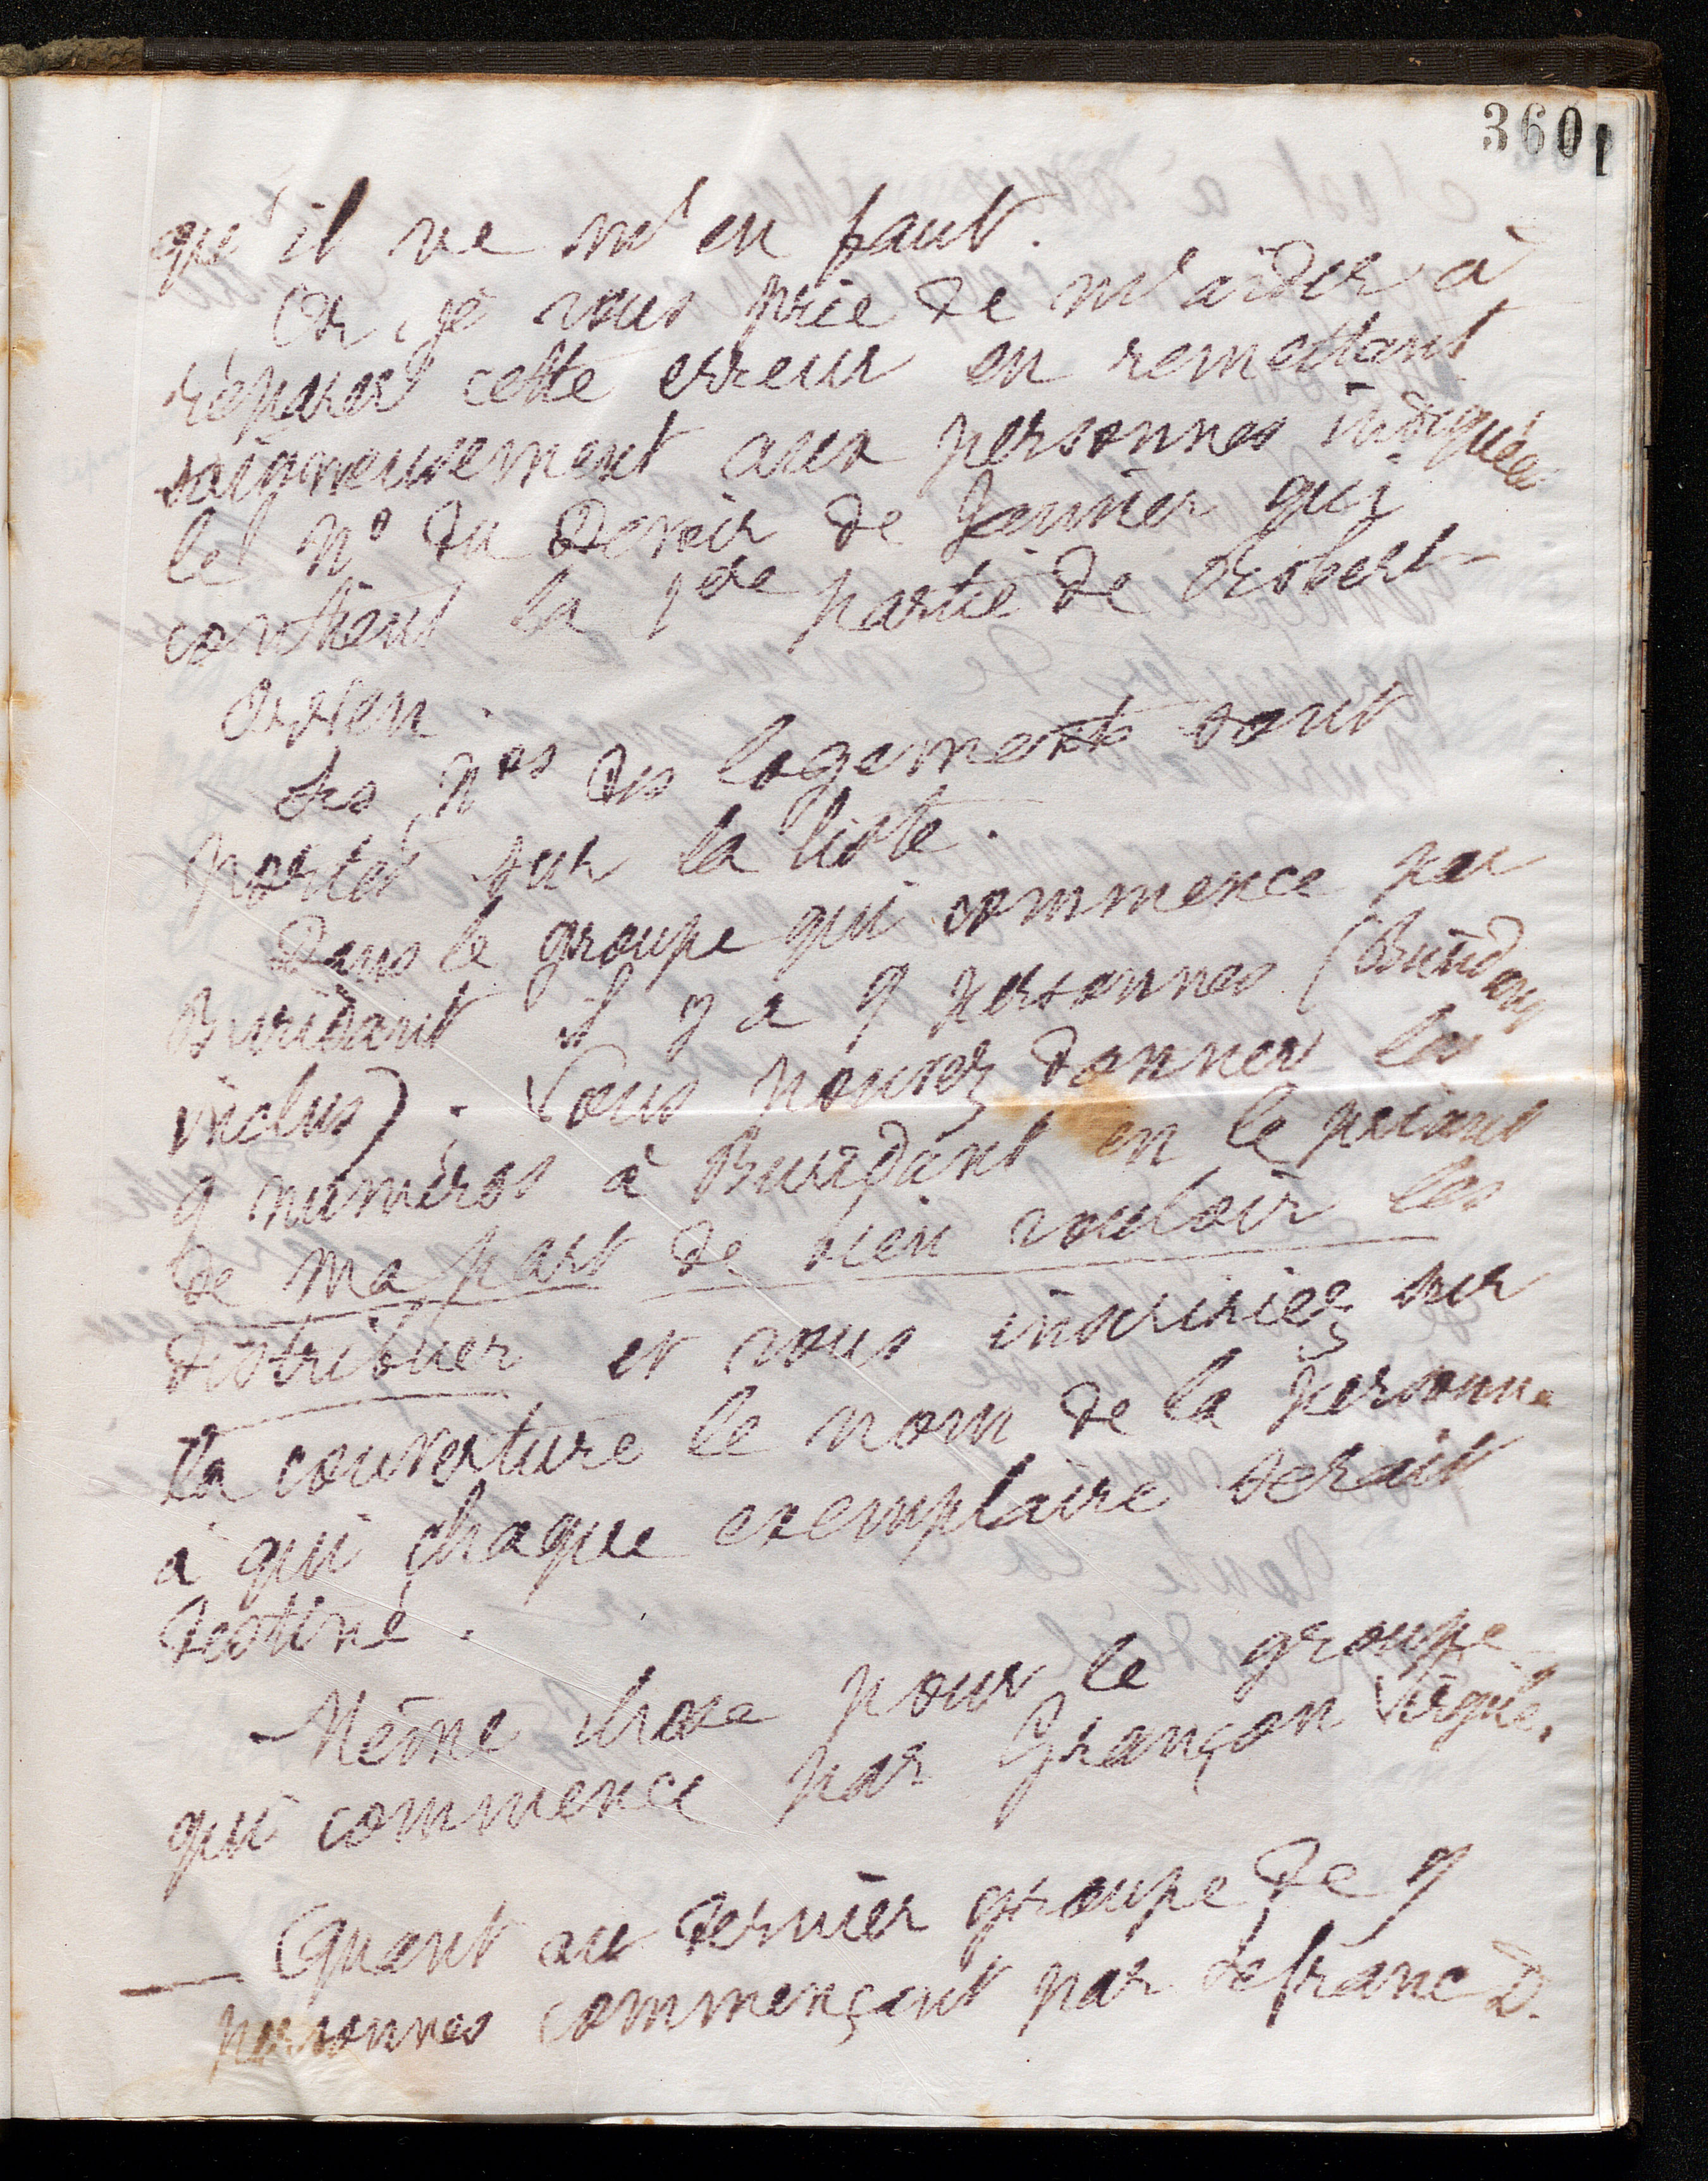 360
qu'il ne m'en faut.
Or, je vous prie de m'aider à
réparer cette erreur en remettant
soigneusement aux personnes indiquées
le N° du Devoir de Janvier qui
contient la 1ère partie de Robert-
Owen.
Les Nos des logements sont
portés sur la liste.
Dans le groupe qui commence par
Buridant il y a 9 personnes (Buridant
inclus). Vous pouvez donner les
9 numéros à Buridant en le priant
de ma part de bien vouloir les
distribuer et vous inscririez sur
la couverture le nom de la personne
à qui chaque exemplaire serait
destiné.
Même chose pour le groupe
qui commence par Grançon Virgile.
Quant au dernier groupe de 9
personnes commençant par Lefranc D.